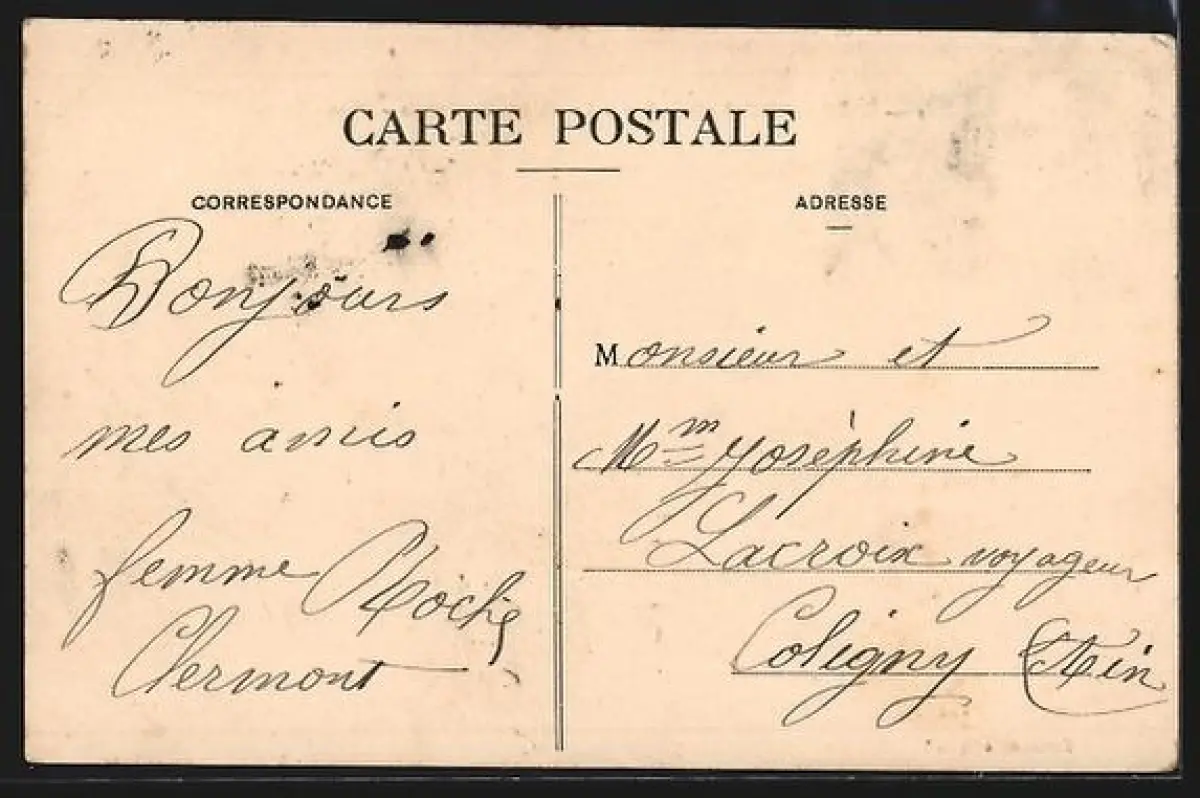 CARTE POSTALE
CORRESPONDANCE
Bonjours
mes amis
femme Roche
Clermont
ADRESSE
Monsieur et
Mm Joséphine
Lacroix voyageur
Coligny (Ain